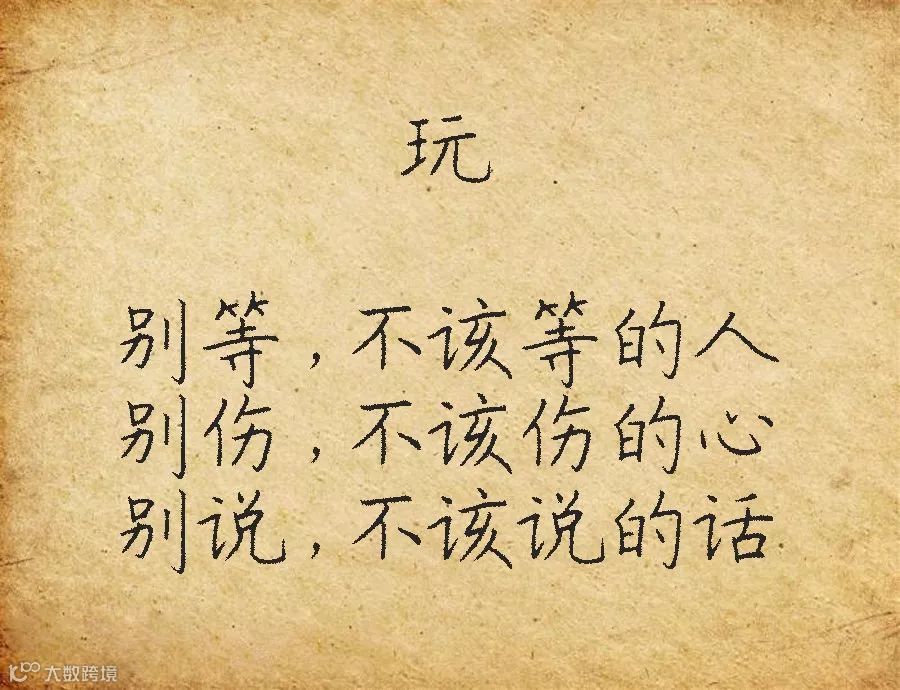 玩
别等，不该等的人
别伤，不该伤的心
别说，不该说的话
大数跨境